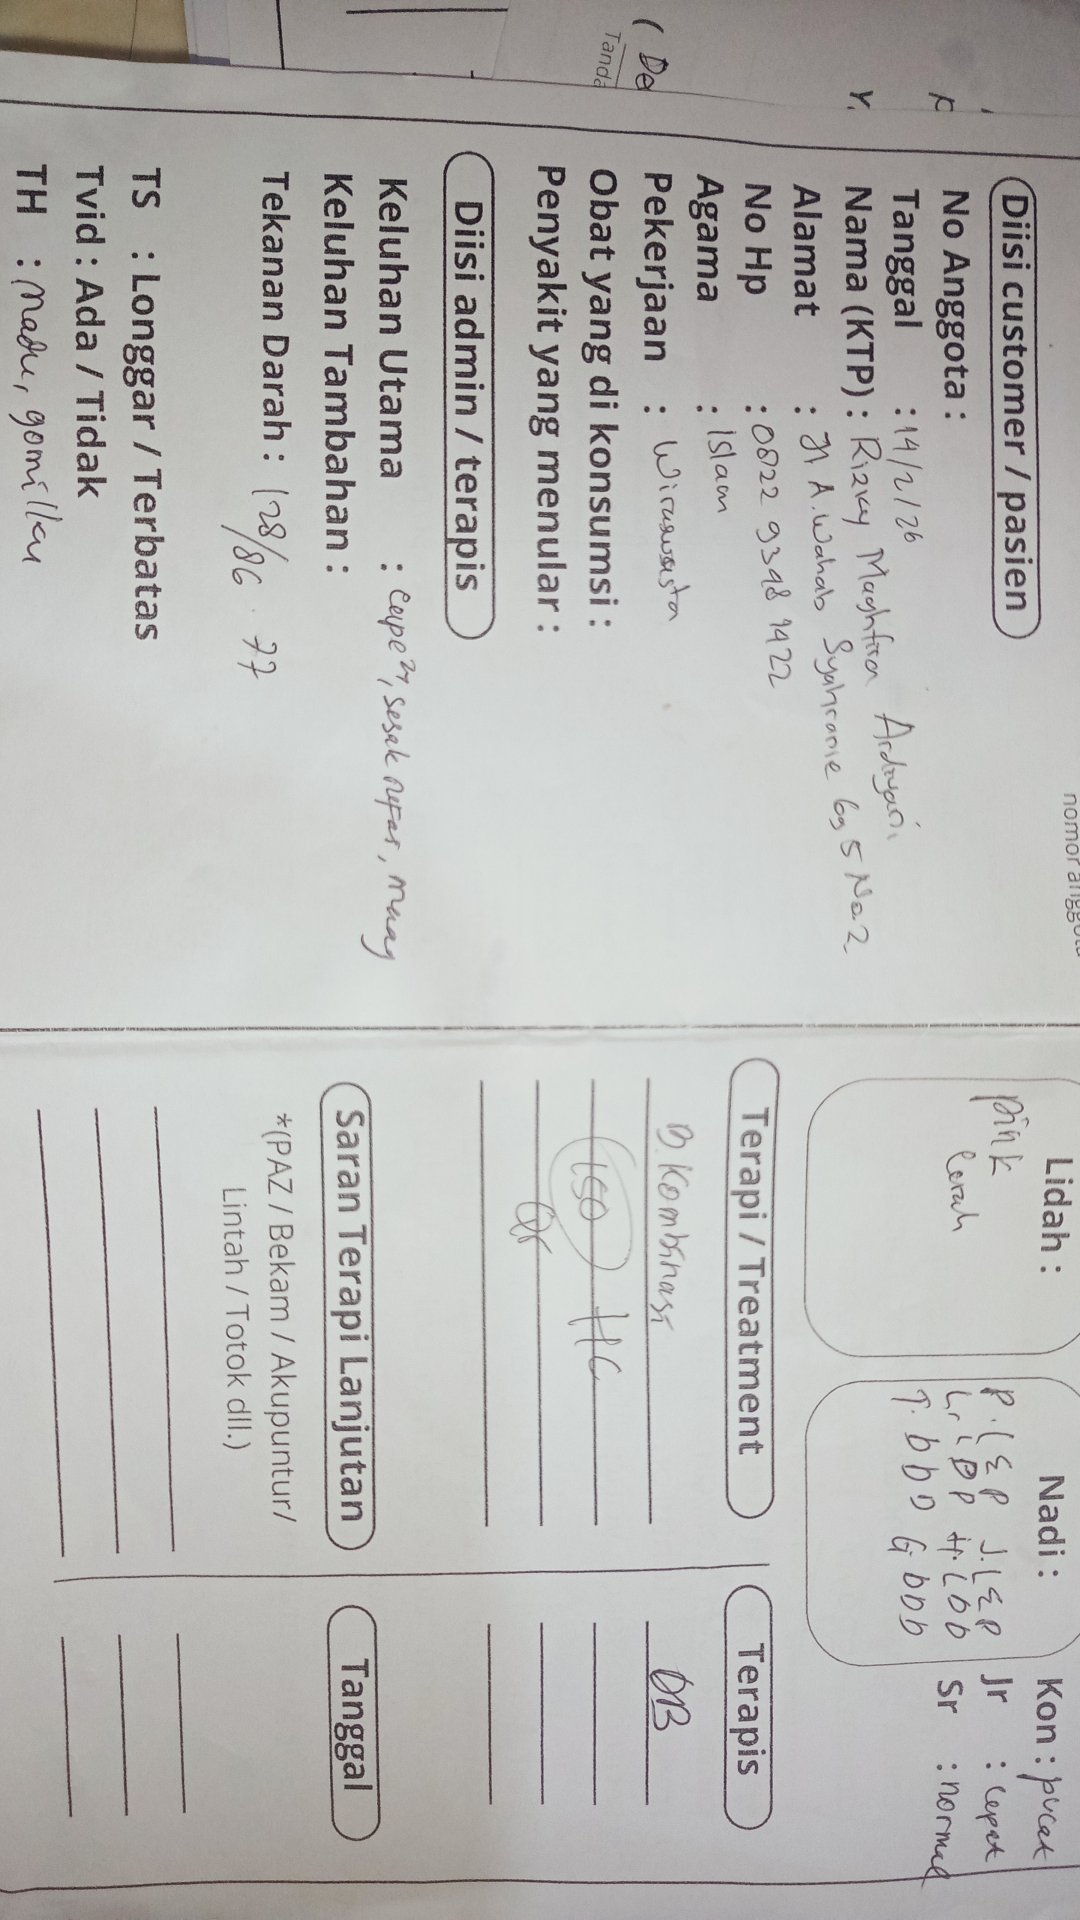 nomor anggota
Diisi customer / pasien
No Anggota :
Tanggal : 14/2/26
Nama (KTP) : Rizky Maghfira
Alamat : Jl A. Wahab Syahranie bg 5 No 2
No Hp : 0822 9348 1422
Agama : Islam
Pekerjaan : Wiraswasta
Obat yang di konsumsi :
Penyakit yang menular :
Diisi admin / terapis
Keluhan Utama : cape², sesak nafas, maag
Keluhan Tambahan :
Tekanan Darah : 128/86 . 77
TS : Longgar / Terbatas
Tvid : Ada / Tidak
TH : madu,
Lidah :
pink
cerah
Nadi :
Kon : pucat
Jr : cepat
Sr : normal
Terapi / Treatment
B. Kombinasi
150 HC
Terapis
Saran Terapi Lanjutan
*(PAZ / Bekam / Akupuntur/
Lintah / Totok dll.)
Tanggal